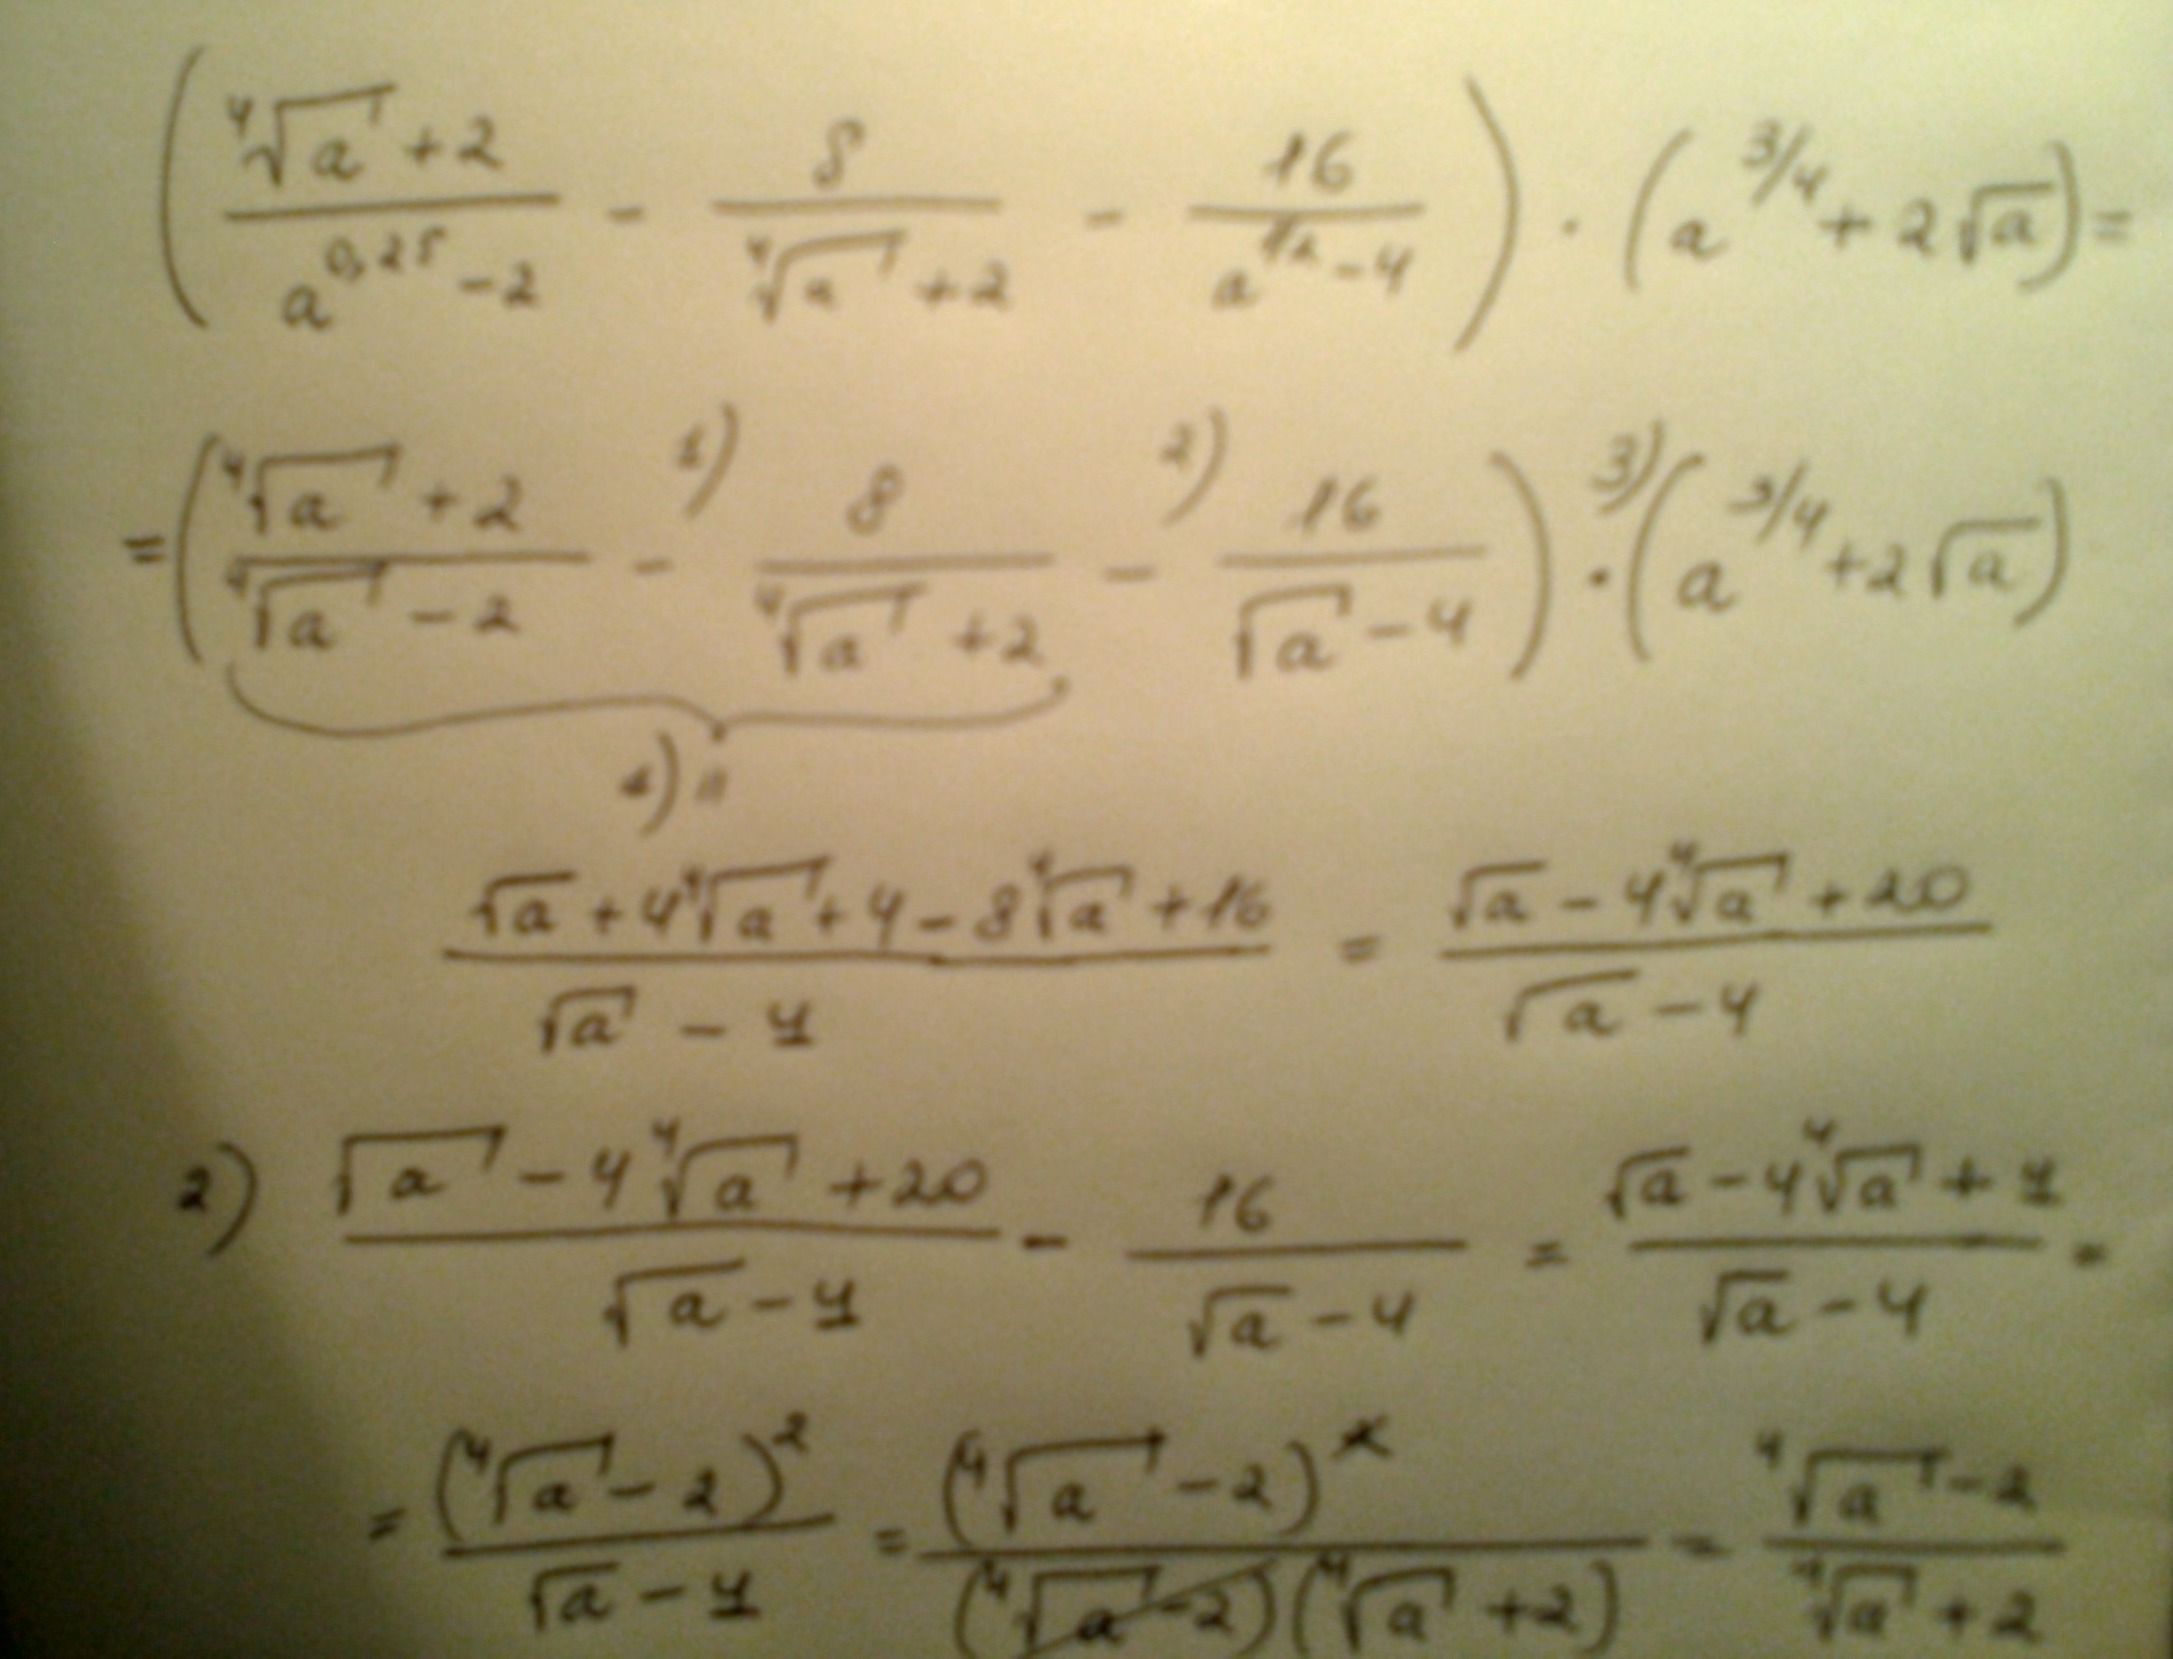 (⁴√a + 2 / a^0,25 − 2 − 8 / ⁴√a + 2 − 16 / a^1/2 − 4) · (a^3/4 + 2√a) =
= (⁴√a + 2 / ⁴√a − 2 −^1) 8 / ⁴√a + 2 −^2) 16 / √a − 4) ·^3) (a^3/4 + 2√a)
1) =
√a + 4⁴√a + 4 − 8⁴√a + 16 / √a − 4 = √a − 4⁴√a + 20 / √a − 4
2) √a − 4⁴√a + 20 / √a − 4 − 16 / √a − 4 = √a − 4⁴√a + 4 / √a − 4 =
= (⁴√a − 2)² / √a − 4 = (⁴√a − 2)² / (⁴√a − 2)(⁴√a + 2) = ⁴√a − 2 / ⁴√a + 2